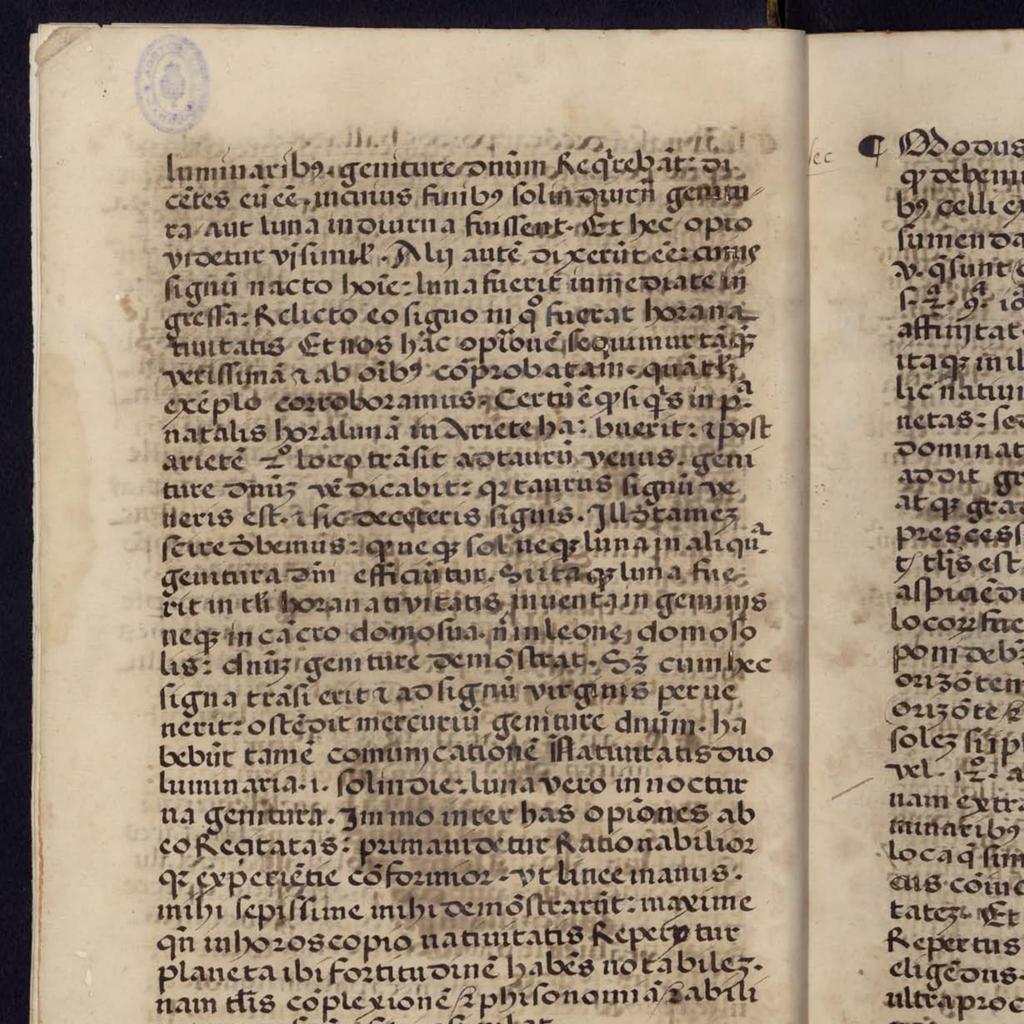 luminaribꝰ. geniture dnūm Reqͥrebāt: di
cētes eū eē. in cuius finibꝰ sol in diurn genitu
ra aut luna in diurna fuissent. Et hec opio
videtur vjsimil. Alij autē dixerūt eē: cuius
signū nacto hoīe: luna fuerit inmediate in
gressa: Relicto eo signo in qͦ fuerat hora na
tiuitatis Et nos hāc opīonē sequimur tāqꝫ
verissimā ⁊ ab oībꝰ cōprobatam.
exēplo corroboramus. Certū ē qp si qͥs in pͣ
natalis hora lunā in Ariete ha: buerit: ⁊ post
arietē 2ͦ loco trāsit ad taurū venus. geni
ture dnūꝫ vēdicabit: qꝛ taurus signū ve
neris est. ⁊ sic de ceteris signis. Illd tameꝫ
scire dbemus: qp neqꝫ sol neqꝫ luna in aliqͣ
genitura dnī efficiūtur. Si itaqꝫ luna fue
rit in hora nativitatis inventa in geminis
neqꝫ in cācro domo sua. in leone, domo so
lis: dnūꝫ geniture demōstrat. Sꝫ cum hec
signa trāsierit ⁊ ad signū virginis perue
nerit: ostēdit mercuriū geniture dnūm. ha
bebūt tamē comunicationē Nativitatis duo
luminaria. i. sol in die: luna vero in noctur
na genitura. Immo inter has opiōnes ab
eo Recitatas: prima uidetur Rationabilior
qꝛ experiētie cōformior. vt linee manus.
mihi sepissime mihi demōstrarūt: maxime
qn̄ in horoscopio nativitatis Reperitur
planeta ibi fortitudinē habēs notabileꝫ.
nam cōplexionē ⁊ phisonomiā rabili
¶ Modus
qp debemu
bꝰ celli ex
sumenda
v. q̄ sunt
affinitat
itaqꝫ in il
lic nativi
netas: sed
dominat
addit gr
atqꝫ grad
prescess
est
aspiciēdi
locoꝝ fue
poni deb
orizōtem
orizōte
soleꝫ
vel. 12ͦ. a
nam extra
minaribꝰ
loca q̄ sim
eius cōiun
tateꝫ. Et
Repertus
eligēdus.
ultra proc